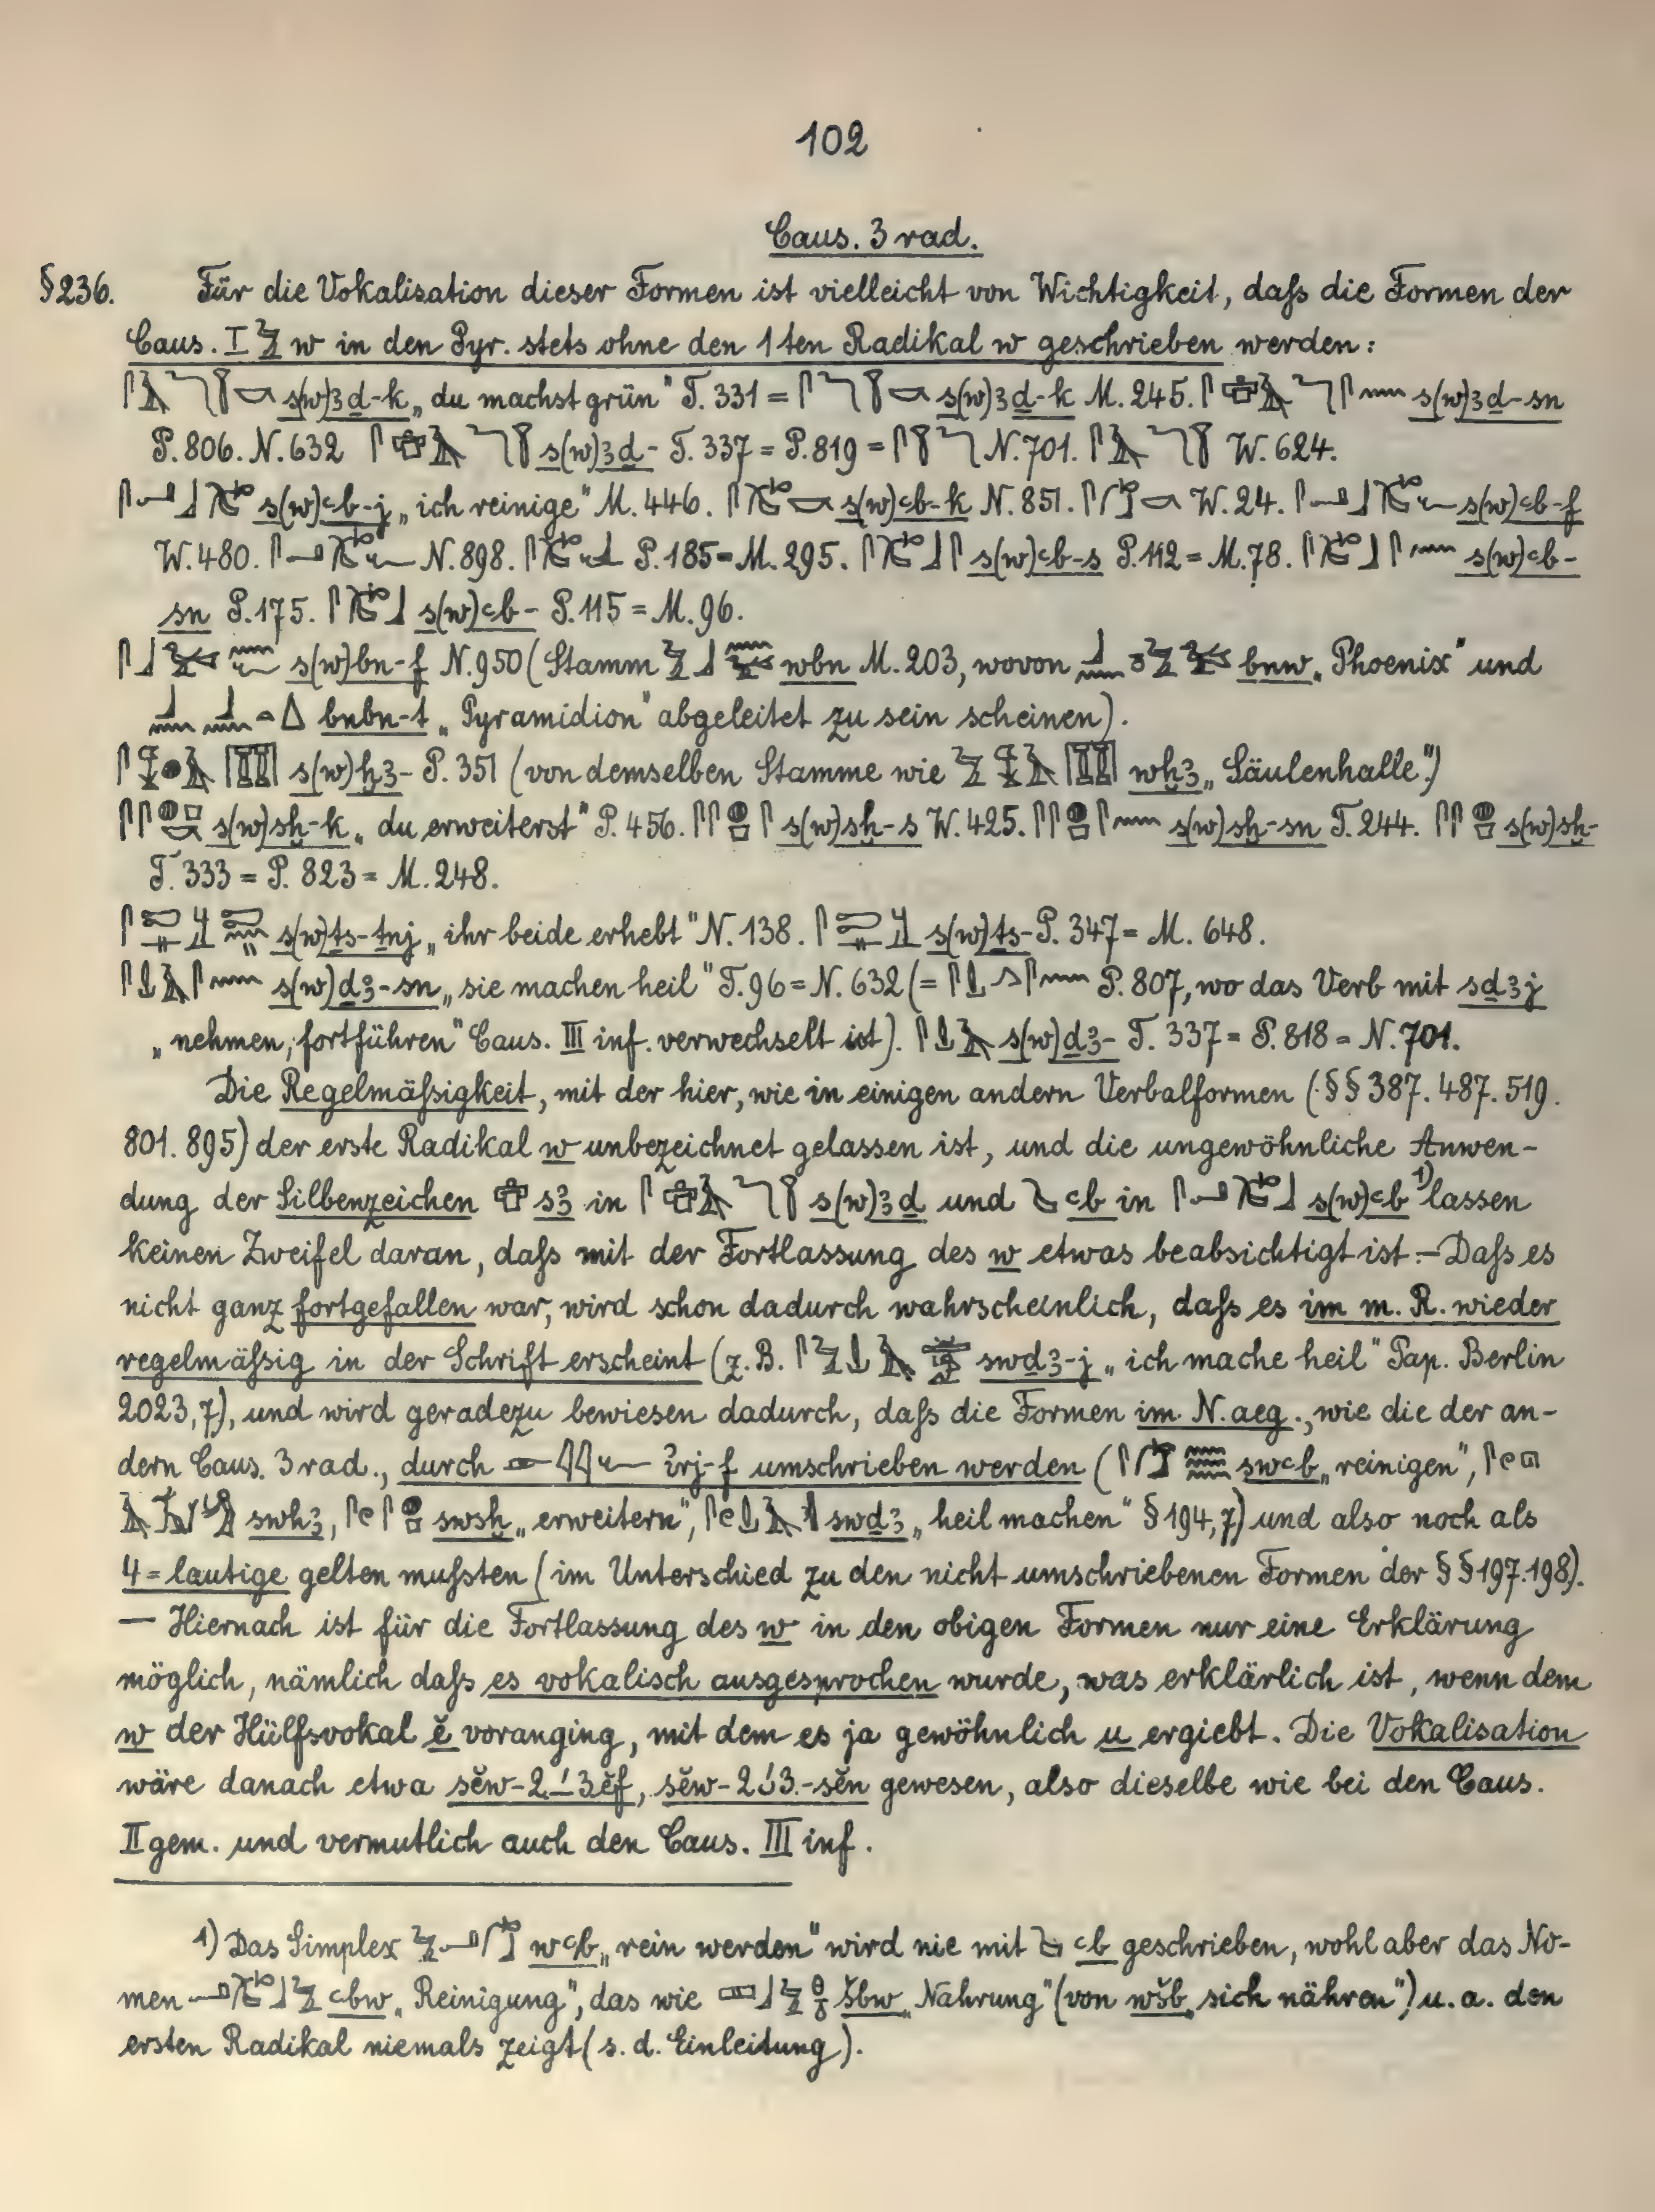 102
Caus. 3 rad.
§ 236. Für die Vokalisation dieser Formen ist vielleicht von Wichtigkeit, daſs die Formen der
Caus. I 𓅱 w in den Pyr. stets ohne den 1ten Radikal w geschrieben werden:
s(w)ꜣḏ-k „du machst grün" T. 331 = s(w)ꜣḏ-k M. 245. s(w)ꜣḏ-sn
P. 806. N. 632 s(w)ꜣḏ- T. 337 = P. 819 = N. 701. W. 624.
s(w)ꜥb-j „ich reinige" M. 446. s(w)ꜥb-k N. 851. W. 24. s(w)ꜥb-f
W. 480. N. 898. P. 185 = M. 295. s(w)ꜥb-s P. 112 = M. 78. s(w)ꜥb-
sn P. 175. s(w)ꜥb- P. 115 = M. 96.
s(w)bn-f N. 950 (Stamm wbn M. 203, wovon bnw „Phoenix" und
bnbn-t „Pyramidion" abgeleitet zu sein scheinen).
s(w)ḫꜣ- P. 351 (von demselben Stamme wie wḫꜣ „Säulenhalle")
s(w)sḫ-k „du erweiterst" P. 456. s(w)sḫ-s W. 425. s(w)sḫ-sn T. 244. s(w)sḫ-
T. 333 = P. 823 = M. 248.
s(w)ṯs-ṯnj „ihr beide erhebt" N. 138. s(w)ṯs- P. 347 = M. 648.
s(w)ḏꜣ-sn „sie machen heil" T. 96 = N. 632 (= P. 807, wo das Verb mit sḏꜣj
„nehmen, fortführen" Caus. III inf. verwechselt ist). s(w)ḏꜣ- T. 337 = P. 818 = N. 701.
Die Regelmäſsigkeit, mit der hier, wie in einigen andern Verbalformen (§§ 387. 487. 519.
801. 895) der erste Radikal w unbezeichnet gelassen ist, und die ungewöhnliche Anwen-
dung der Silbenzeichen sꜣ in s(w)ꜣḏ und ꜥb in s(w)ꜥb 1) lassen
keinen Zweifel daran, daſs mit der Fortlassung des w etwas beabsichtigt ist. — Daſs es
nicht ganz fortgefallen war, wird schon dadurch wahrscheinlich, daſs es im m. R. wieder
regelmäſsig in der Schrift erscheint (z. B. swḏꜣ-j „ich mache heil" Pap. Berlin
2023, 7), und wird geradezu bewiesen dadurch, daſs die Formen im N. aeg., wie die der an-
dern Caus. 3 rad., durch ꞽrj-f umschrieben werden ( swꜥb „reinigen",
swhꜣ, swsḫ „erweitern", swḏꜣ „heil machen" § 194, 7) und also noch als
4=lautige gelten muſsten (im Unterschied zu den nicht umschriebenen Formen der §§ 197. 198).
— Hiernach ist für die Fortlassung des w in den obigen Formen nur eine Erklärung
möglich, nämlich daſs es vokalisch ausgesprochen wurde, was erklärlich ist, wenn dem
w der Hülfsvokal ĕ voranging, mit dem es ja gewöhnlich u ergiebt. Die Vokalisation
wäre danach etwa sĕw-2 3ĕf, sĕw-2 3-sĕn gewesen, also dieselbe wie bei den Caus.
II gem. und vermutlich auch den Caus. III inf.
1) Das Simplex wꜥb „rein werden" wird nie mit ꜥb geschrieben, wohl aber das No-
men ꜥbw „Reinigung", das wie šbw „Nahrung" (von wšb „sich nähren") u. a. den
ersten Radikal niemals zeigt (s. d. Einleitung).